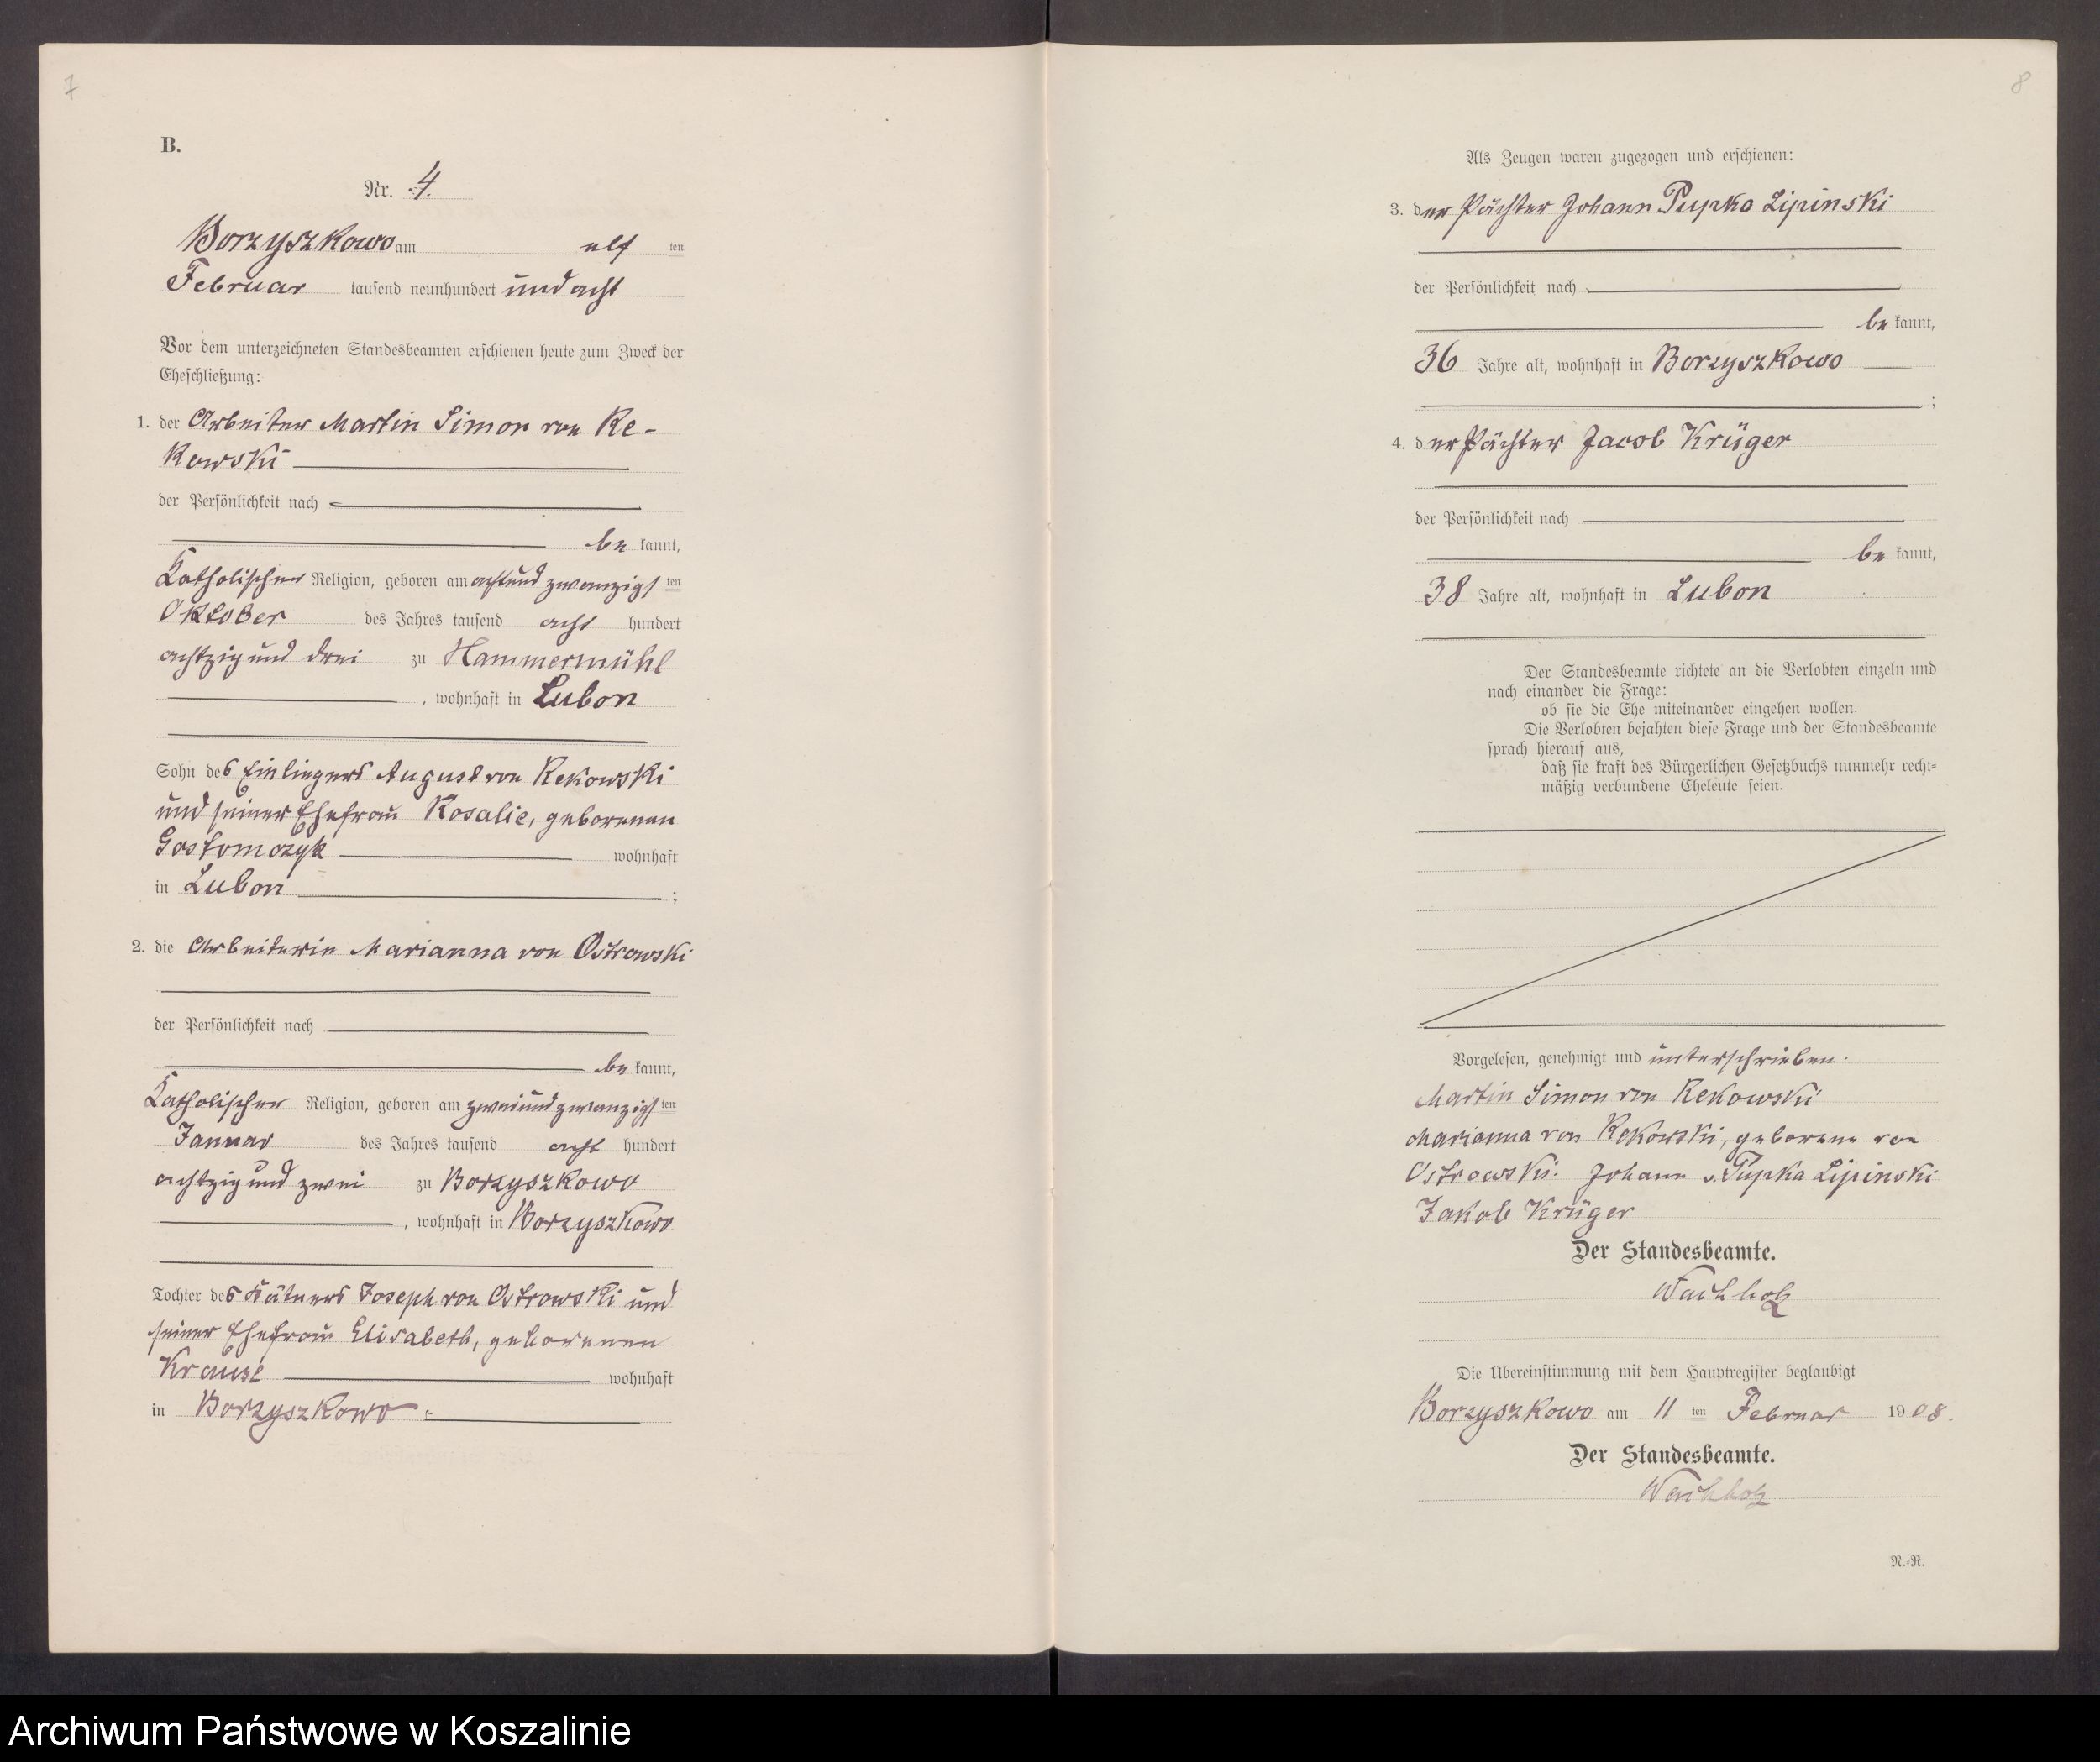 7
B.
Nr. 4.
Borzyszkowo am elf ten
Februar tausend neunhundert und acht
Vor dem unterzeichneten Standesbeamten erschienen heute zum Zweck der
Eheschließung:
1. der Arbeiter Martin Simon von Re-
kowski
der Persönlichkeit nach
be kannt,
Katholischer Religion, geboren am achtundzwanzigsten
Oktober des Jahres tausend acht hundert
achtzig und drei zu Hammermühl
, wohnhaft in Lubon
Sohn des Einliegers August von Rekowski
und seiner Ehefrau Rosalie, geborenen
Gostomczyk wohnhaft
in Lubon ;
2. die Arbeiterin Marianna von Ostrowski
der Persönlichkeit nach
be kannt,
Katholischer Religion, geboren am zweiundzwanzigsten
Januar des Jahres tausend acht hundert
achtzig und zwei zu Borzyszkowo
, wohnhaft in Borzyszkowo
Tochter des Kätners Joseph von Ostrowski und
seiner Ehefrau Elisabeth, geborenen
Krause wohnhaft
in Borzyszkowo.
8
Als Zeugen waren zugezogen und erschienen:
3. der Pächter Johann Pupka Lipinski
der Persönlichkeit nach
be kannt,
36 Jahre alt, wohnhaft in Borzyszkowo
;
4. der Pächter Jacob Krüger
der Persönlichkeit nach
be kannt,
38 Jahre alt, wohnhaft in Lubon
Der Standesbeamte richtete an die Verlobten einzeln und
nach einander die Frage:
ob sie die Ehe miteinander eingehen wollen.
Die Verlobten bejahten diese Frage und der Standesbeamte
sprach hierauf aus,
daß sie kraft des Bürgerlichen Gesetzbuchs nunmehr recht-
mäßig verbundene Eheleute seien.
Vorgelesen, genehmigt und unterschrieben.
Martin Simon von Rekowski
Marianna von Rekowski, geborene von
Ostrowski. Johann v. Pupka Lipinski
Jakob Krüger
Der Standesbeamte.
Wachholz
Die Übereinstimmung mit dem Hauptregister beglaubigt
Borzyszkowo am 11 ten Februar 1908.
Der Standesbeamte.
Wachholz
N.-R.
Archiwum Państwowe w Koszalinie